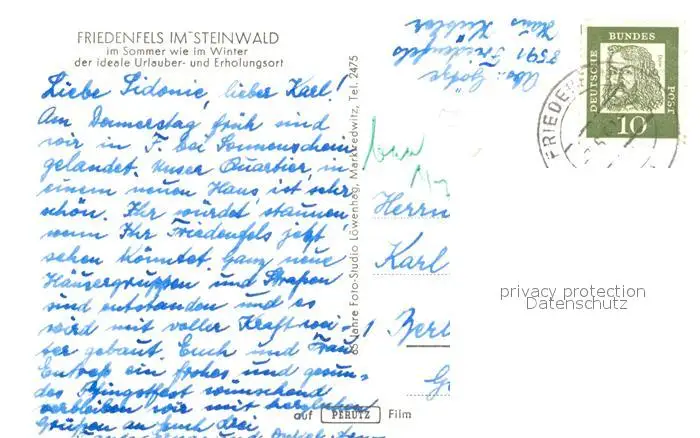 FRIEDENFELS IM STEINWALD
im Sommer wie im Winter
der ideale Urlauber- und Erholungsort
Liebe Sidonie, lieber Karl!
Am Donnerstag früh sind
wir in F. bei Sonnenschein
gelandet. Unser Quartier, in
einem neuen Haus, ist sehr
schön. Ihr würdet staunen,
wenn Ihr Friedenfels jetzt
sehen könntet. Ganz neue
Häusergruppen und Straßen
sind entstanden und es
wird mit voller Kraft wei-
ter gebaut. Euch und Frau
ein frohes und gesun-
des Pfingstfest wünschend
verbleiben wir mit herzlichen
Grüßen an Euch drei
und
65 Jahre Foto-Studio Löwenhag, Marktredwitz, Tel. 2475
auf PERUTZ Film
Abs.
8591 Friedenfels
Haus
DEUTSCHE BUNDES POST
10
FRIEDENF
Herrn
Karl
1 Berl
privacy protection
Datenschutz